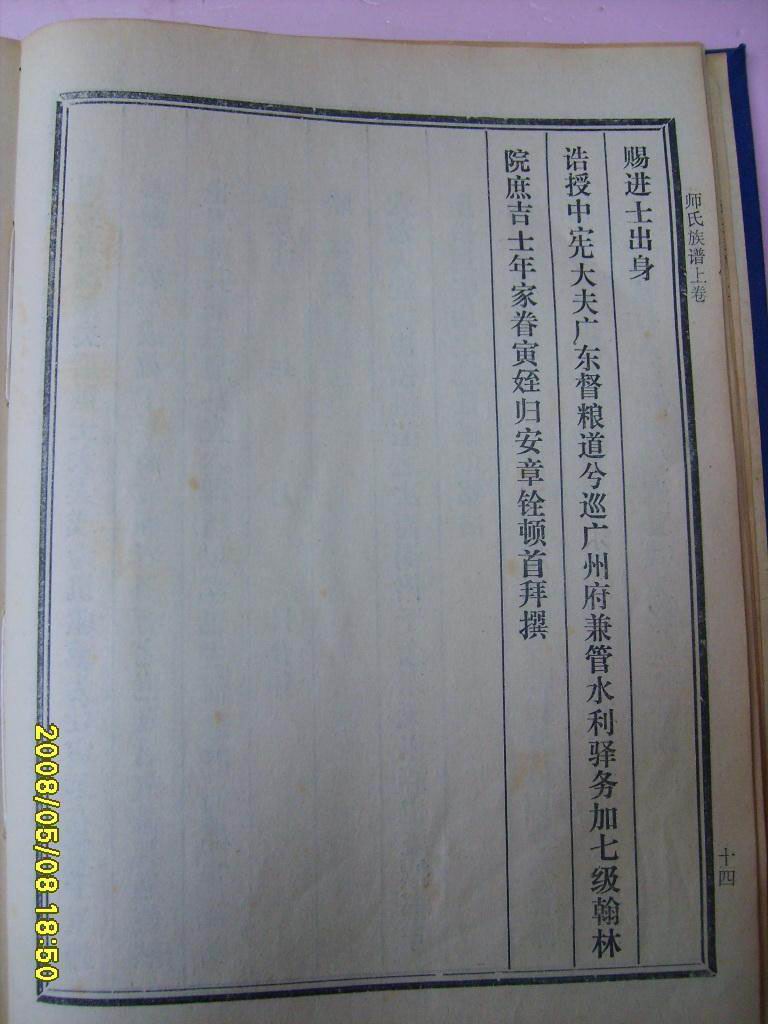 师氏族谱上卷
赐进士出身
诰授中宪大夫广东督粮道兮巡广州府兼管水利驿务加七级翰林
院庶吉士年家眷寅姪归安章铨顿首拜撰
十四
2008/05/08 18:50